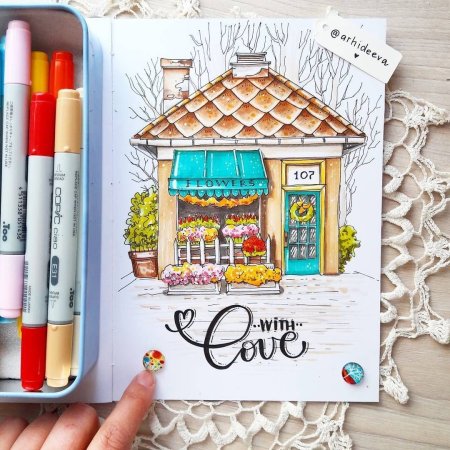 @arhideeva
FLOWERS
107
WITH
Love
COPIC
ciao
.Too
.Too